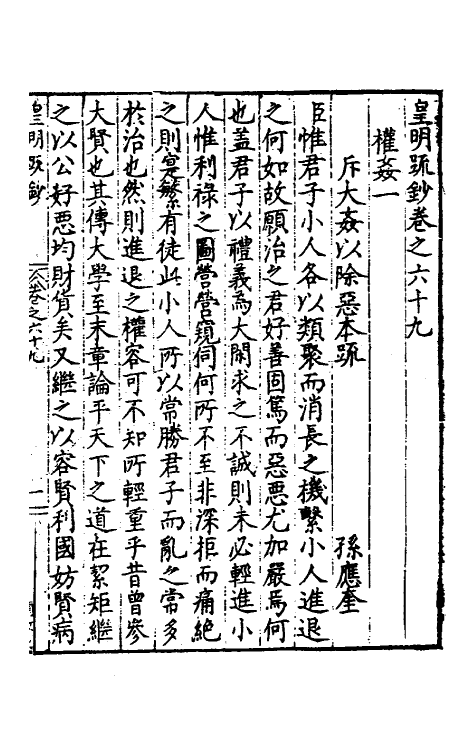 皇明疏鈔卷之六十九
權姦一
斥大姦以除惡本疏 孫應奎
臣惟君子小人各以類聚而消長之機繫小人進退
之何如故願治之君好善固篤而惡惡尤加嚴焉何
也蓋君子以禮義為大閑求之不誠則未必輕進小
人惟利祿之圖營營窺伺何所不至非深拒而痛絕
之則寔繁有徒此小人所以常勝君子而亂之常多
於治也然則進退之權容可不知所輕重乎昔曾參
大賢也其傳大學至末章論平天下之道在絜矩繼
之以公好惡均財貨矣又繼之以容賢利國妨賢病
皇明疏鈔
卷之六十九
一